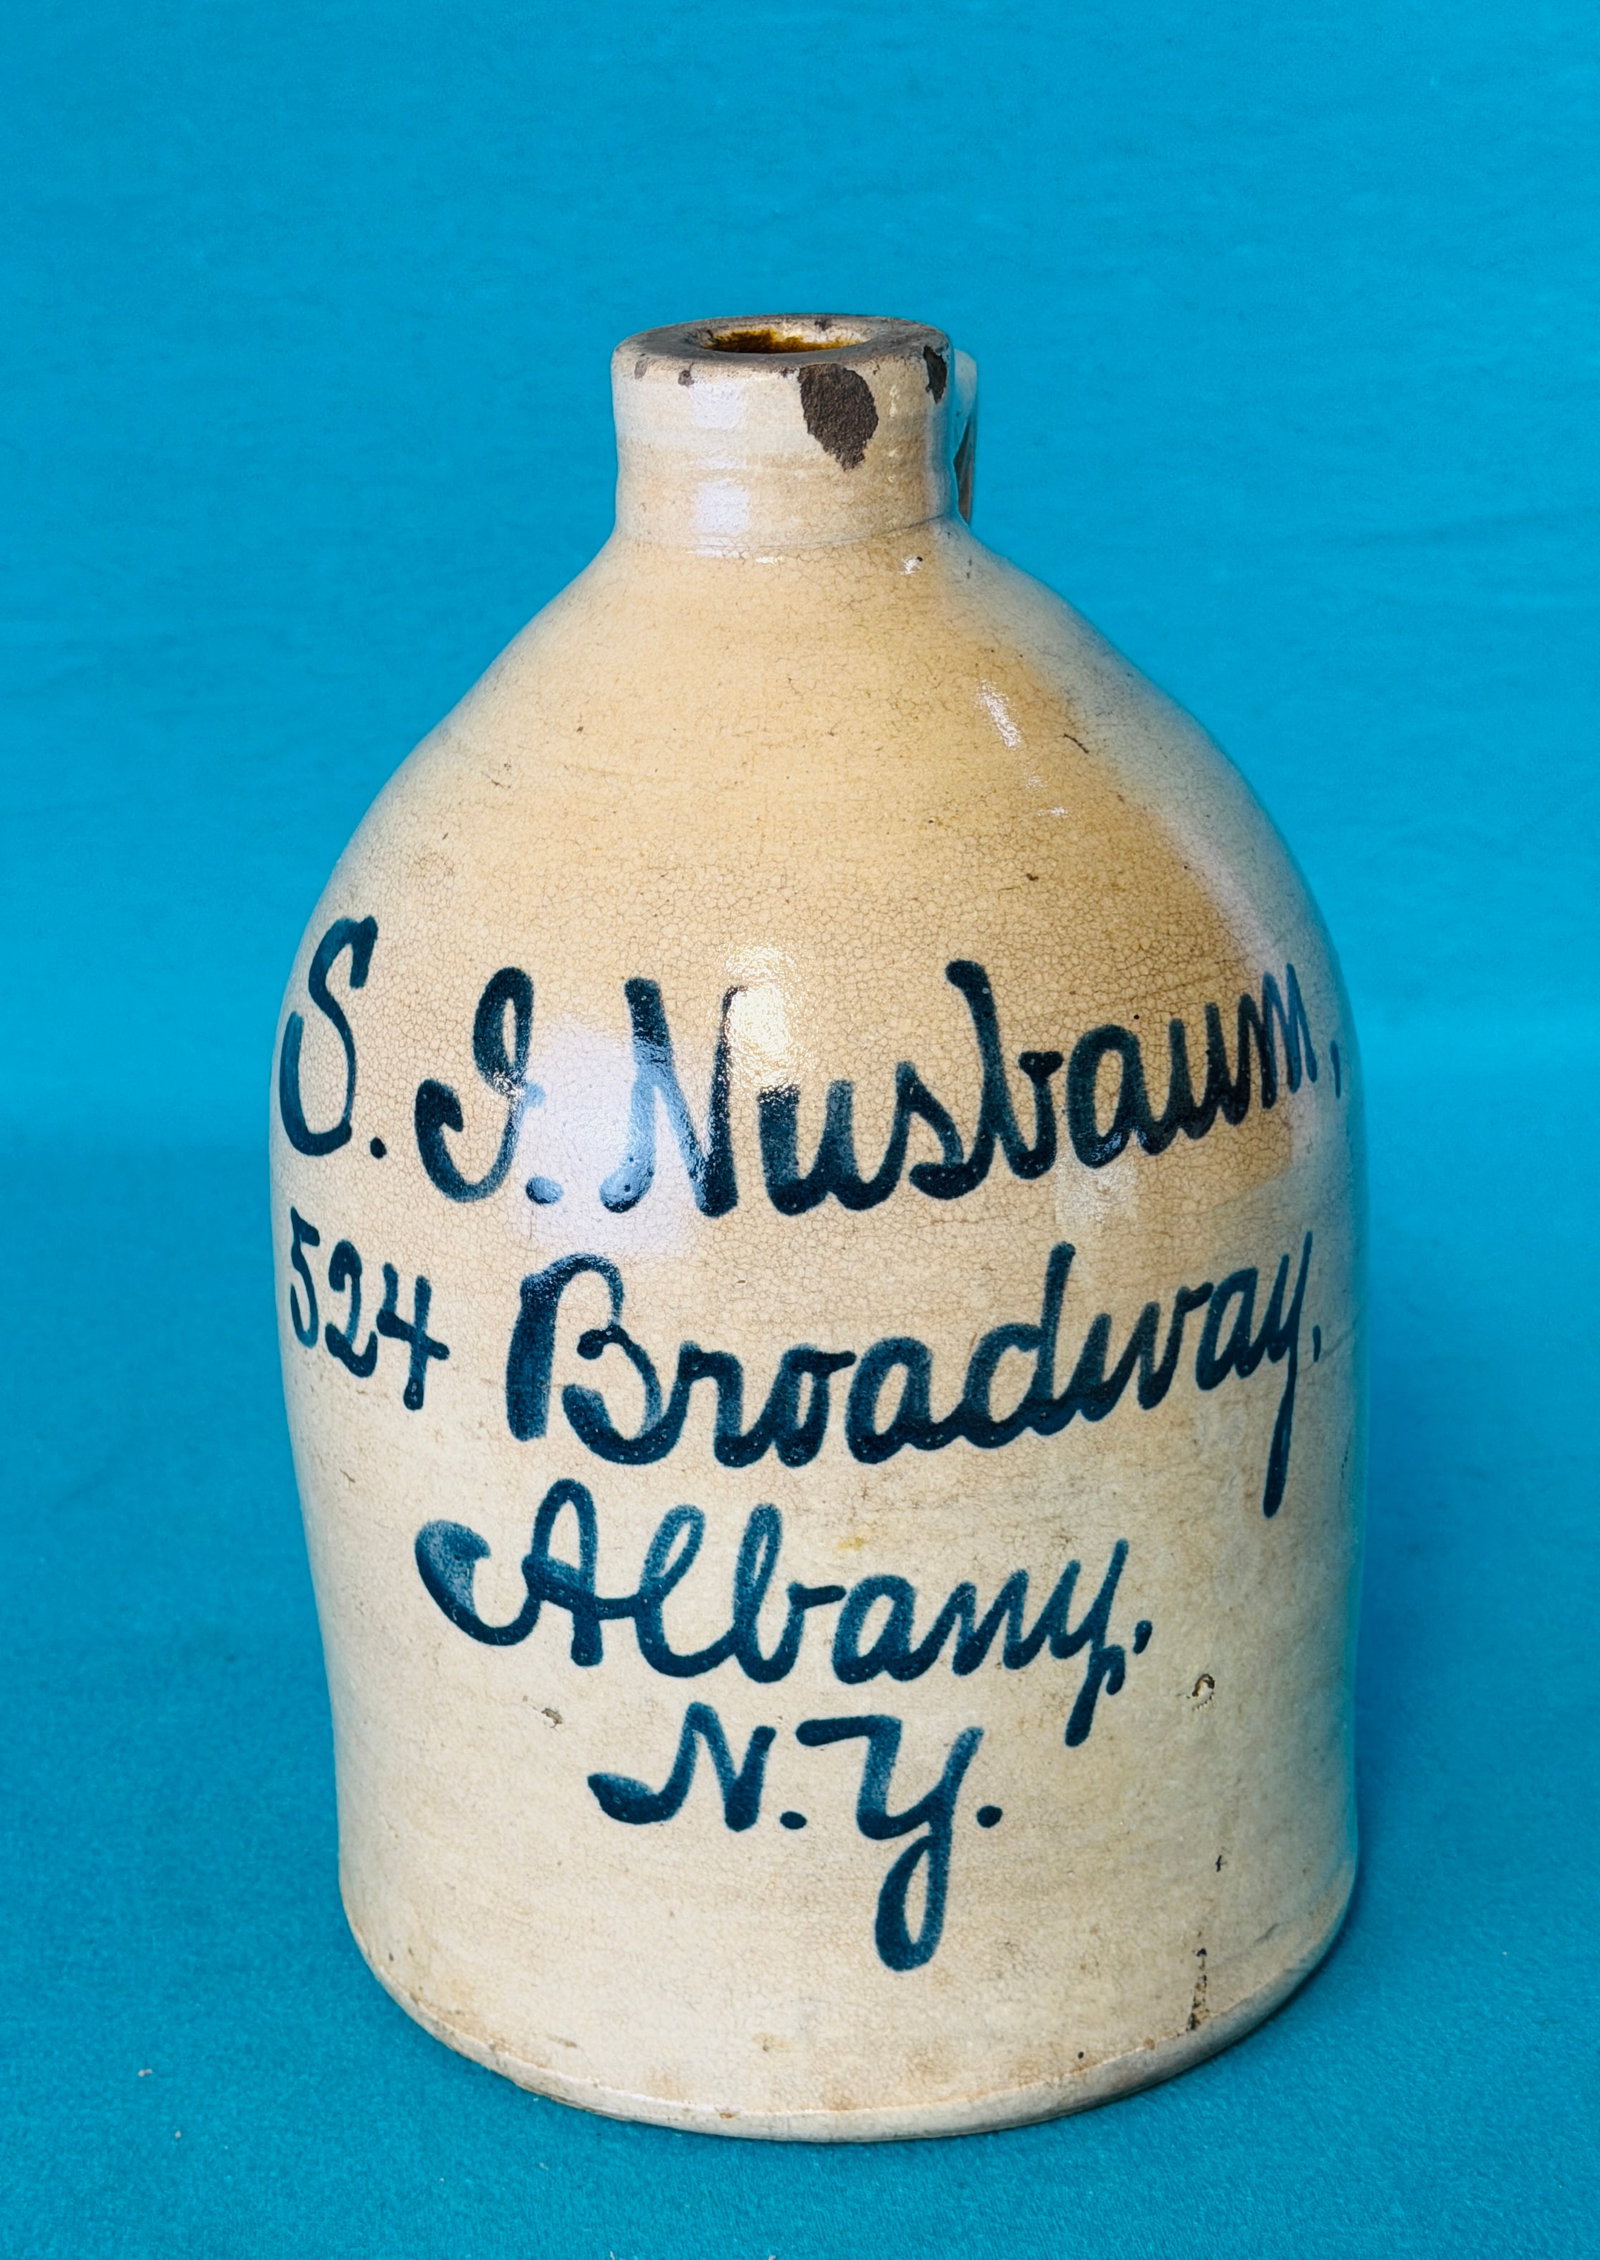 S. I. Nusbaum,
524 Broadway.
Albany,
N.Y.